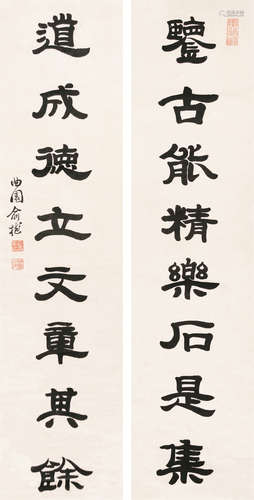 鑒古能精樂石是集
道成德立文章其餘
曲園俞樾